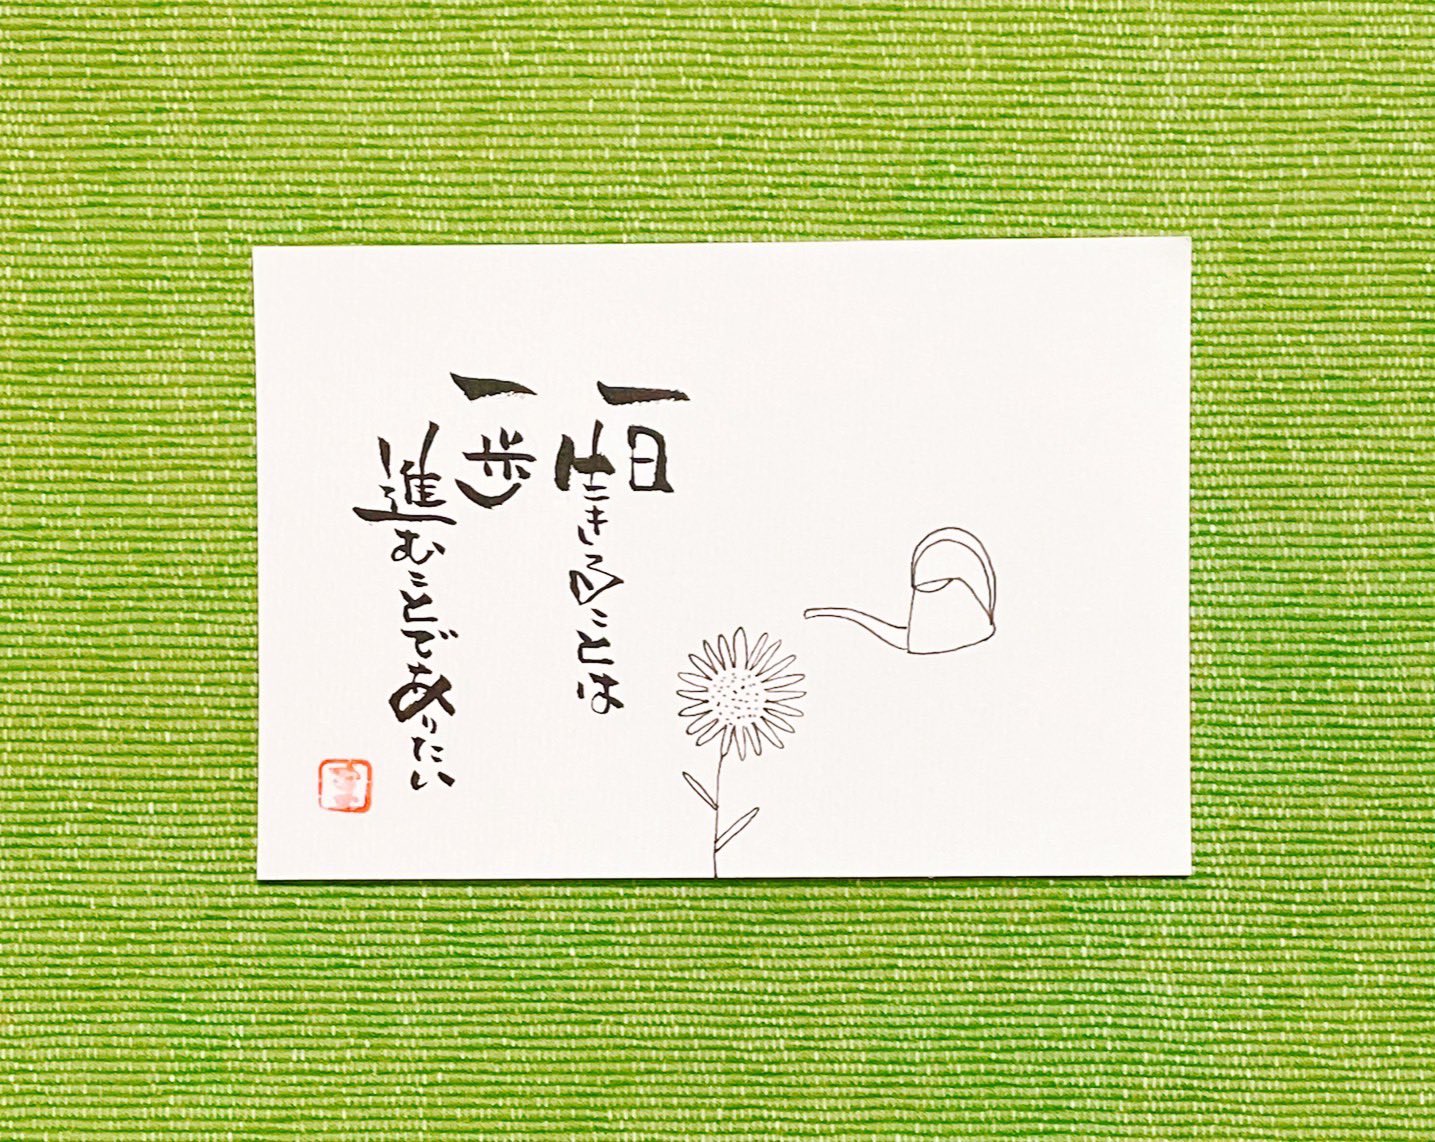 一日
生きることは
一歩
進むことでありたい